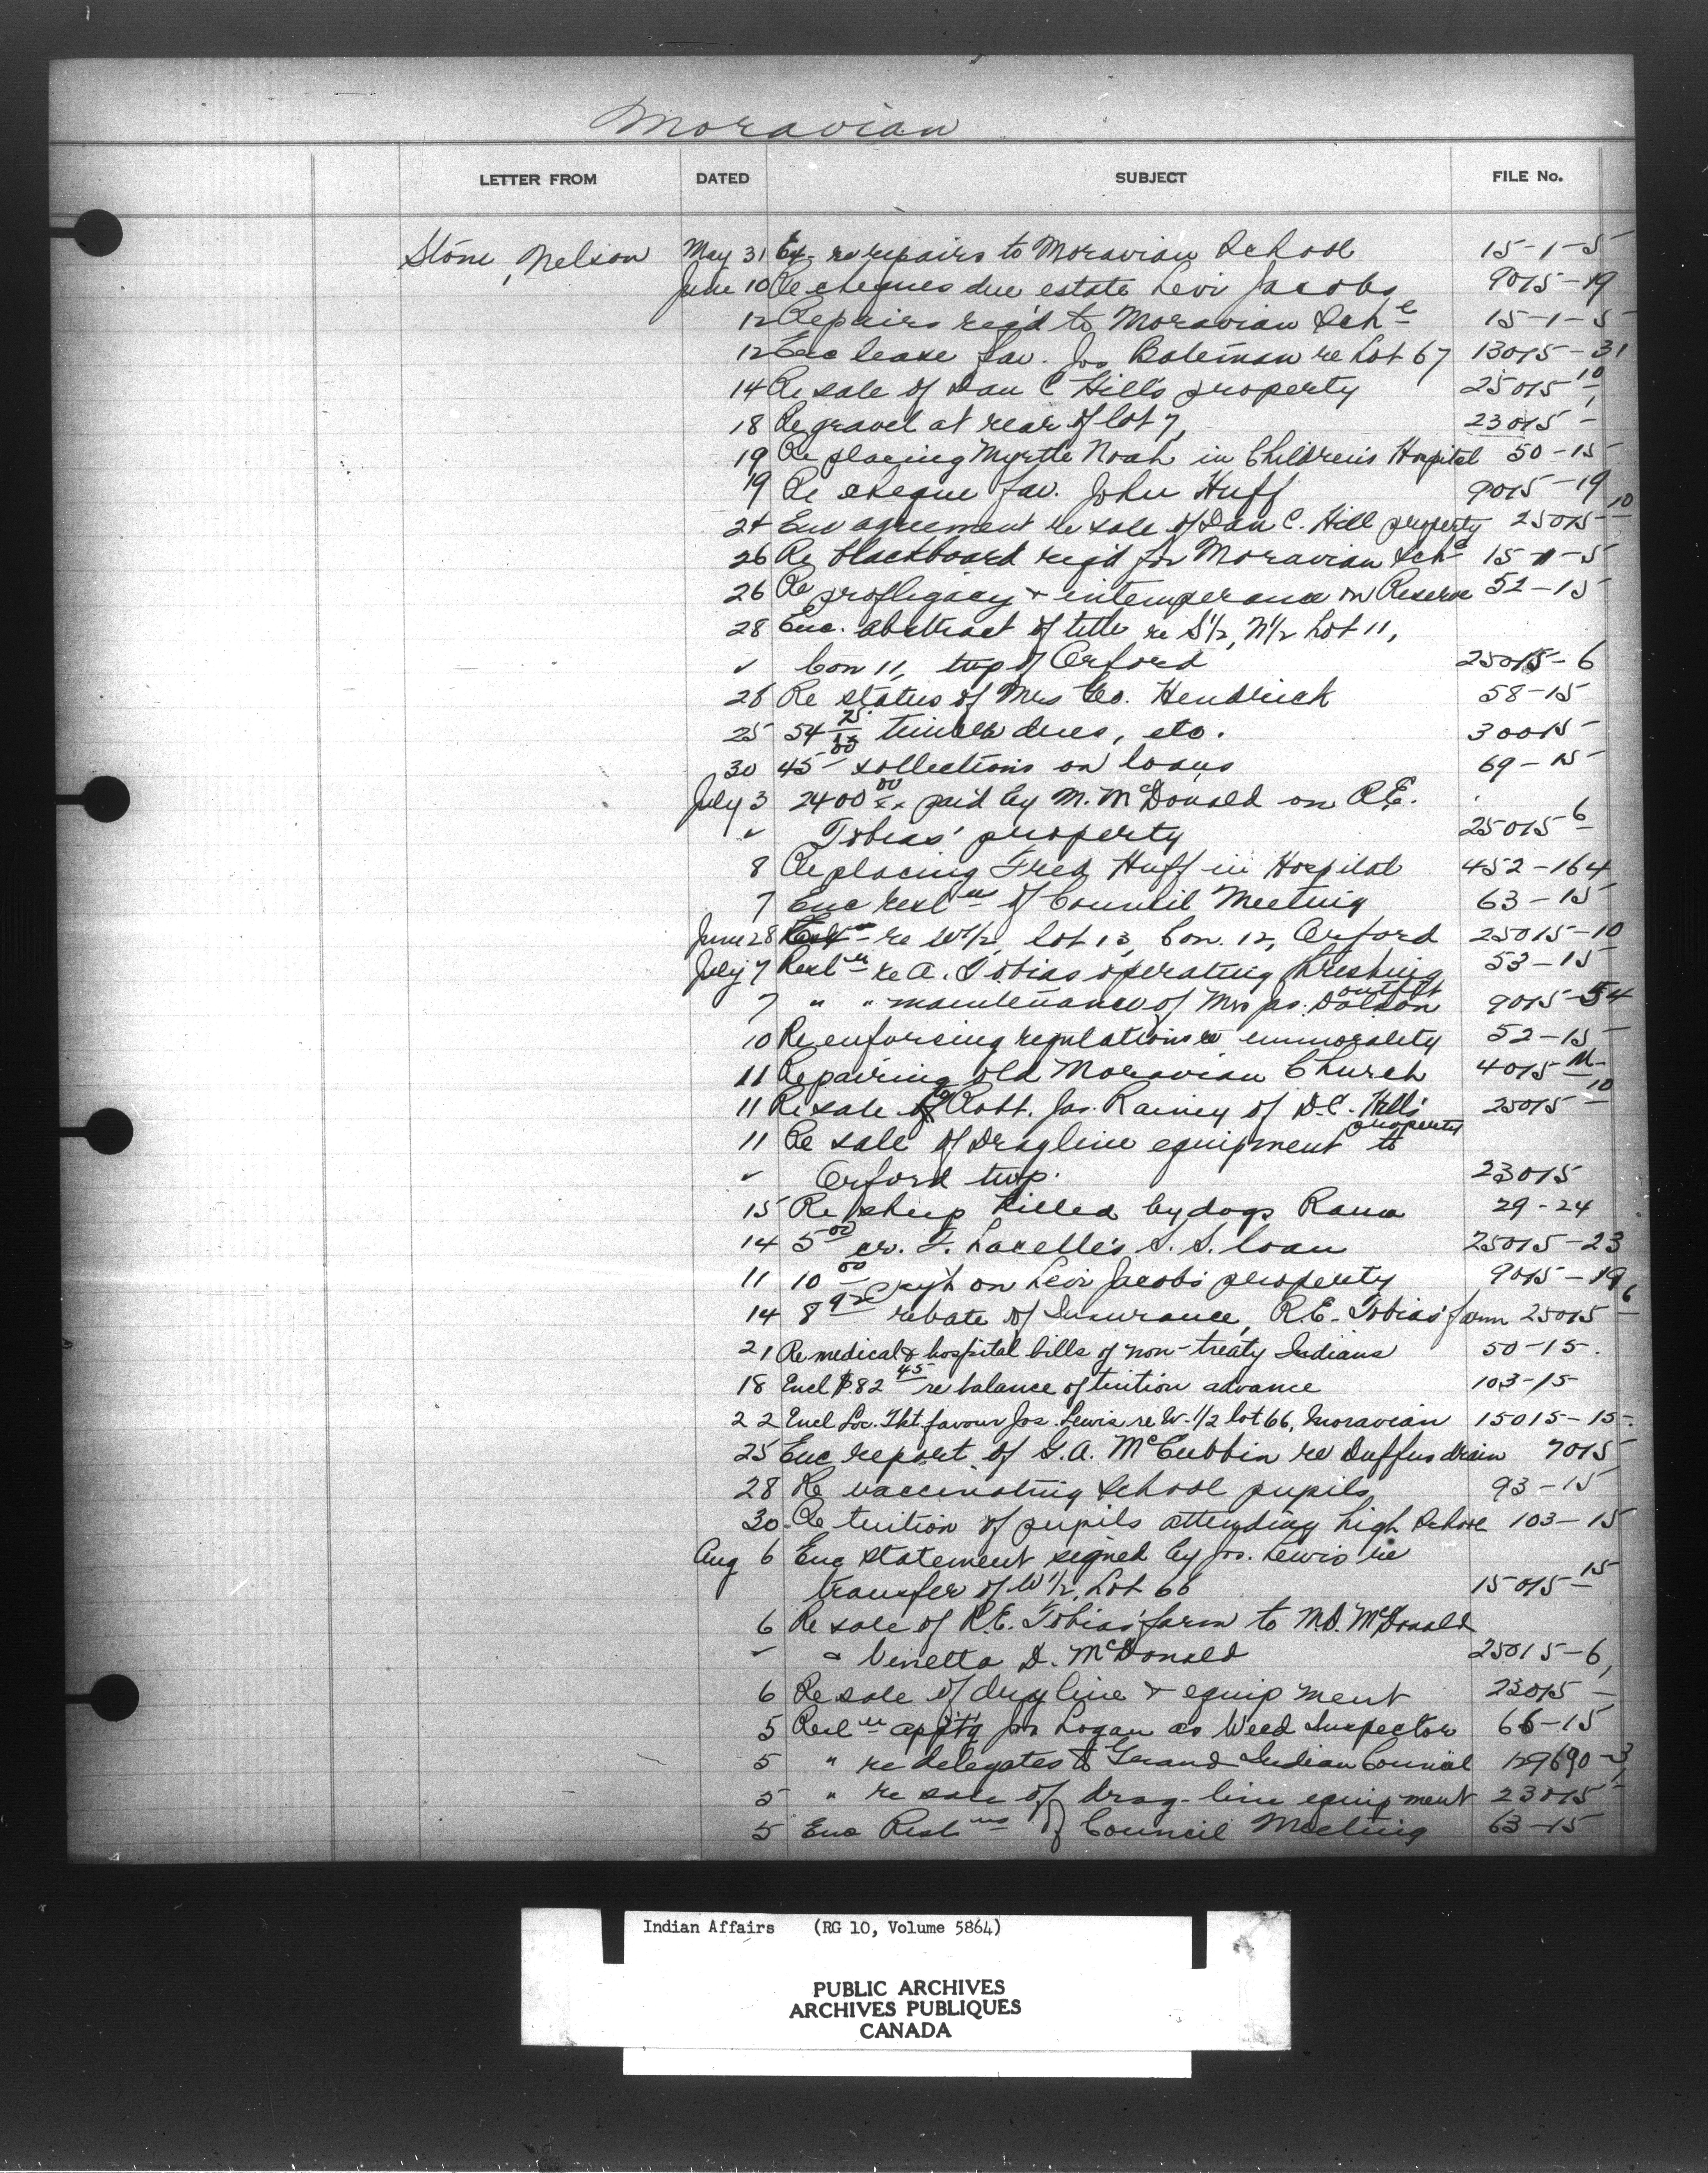 Moravian
LETTER FROM DATED SUBJECT FILE No.
Stone, Nelson May 31 Ex. re repairs to Moravian School 15-1-5
June 10 Re cheques due estate Levi Jacobs 9015-19
12 Repairs req'd to Moravian Schl 15-1-5
12 Enc lease fav. Jos Bateman re Lot 67 13015-31
14 Re sale of Dan C Hill's property 25015-10
18 Re gravel at rear of lot 7, 23015-1
19 Re placing Myrtle Noah in Children's Hospital 50-15
19 Re cheque fav. John Huff 9015-19
24 Enc agreement re sale of Dan C. Hill property 25015-10
26 Re blackboard req'd for Moravian Schl 15-1-5
26 Re profligacy & intemperance on Reserve 52-15
28 Enc. abstract of title re S1/2, N1/2 Lot 11,
✓ Con 11, twp of Orford 25015-6
26 Re status of Mrs Geo. Hendrick 58-15
25 54 25/xx timber dues, etc. 30015
30 45 00 collections on loans 69-15
July 3 2400 00/xx paid by M. McDonald on R.E.
✓ Tobias' property 25015-6
8 Re placing Fred Huff in Hospital 452-164
7 Enc reslns of Council Meeting 63-15
June 28 re W1/2 lot 13, Con. 12, Orford 25015-10
July 7 Resln re A. Tobias operating threshing outfit 53-15
7 " " maintenance of Mrs Jas. Dolson 9015-54
10 Re enforcing regulations re immorality 52-15
11 Repairing old Moravian Church 4015 M-
11 Re sale to Robt. Jas. Rainey of D.C. Hill's property 25015-10
11 Re sale of Dragline equipment to
✓ Orford twp. 23015
15 Re sheep killed by dogs Rama 29-24
14 5 00 cr. F. Lacelle's S. S. loan 25015-23
11 10 00 paym't on Levi Jacobs property 9015-19
14 8 92 rebate of Insurance, R.E. Tobias' farm 25015-6
21 Re medical & hospital bills of non-treaty Indians 50-15.
18 Encl $82 45 re balance of tuition advance 103-15
22 Encl Loc. Tkt. favour Jos. Lewis re W. 1/2 lot 66, Moravian 15015-15.
25 Enc report of G.A. McCubbin re Duffus drain 7015
28 Re vaccinating school pupils 93-15
30 Re tuition of pupils attending high school 103-15
Aug 6 Enc statement signed by Jos. Lewis re
transfer of W1/2, Lot 66 15015-15
6 Re sale of R.E. Tobias' farm to M.D. McDonald
✓ & Vinetta D. McDonald 25015-6,
6 Re sale of dragline & equipment 23015-1
5 Resln app't'g Jos Logan as Weed Inspector 66-15
5 " re delegates to Grand Indian Council 129690-3
5 " re sale of drag-line equipment 23015-1
5 Enc Reslns of Council Meeting 63-15
Indian Affairs (RG 10, Volume 5864)
PUBLIC ARCHIVES
ARCHIVES PUBLIQUES
CANADA